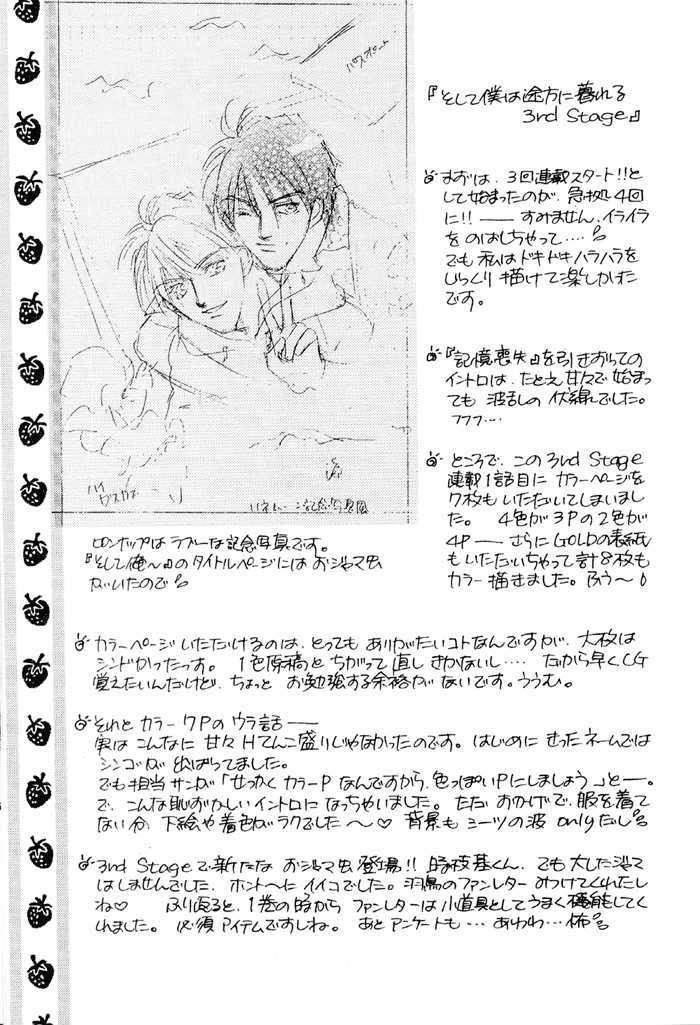 ハウスボート
『そして僕は途方に暮れる
3rd Stage』
まずは、3回連載スタート!!と
して始まったのが、急拠4回
に!! ―― すみません、イライラ
をのばしちゃって‥‥
でも私はドキドキハラハラを
じっくり描けて楽しかった
です。
『記憶喪失』を引きおこしての
イントロは、たとえ甘々で始まっ
ても波乱の伏線でした。
フフフ…
ところで、この3rd Stage
連載1話目にカラーページを
7枚もいただいてしまいまし
た。 4色が3Pの2色が
4P ―― さらにGOLDの表紙
もいただいちゃって計8枚も
カラー描きました。ふう〜
記念写真風
ピンナップはラブラブな記念写真です。
『そして僕〜』のタイトルページにはおジャマ虫
がいたので
カラーページいただけるのは、とってもありがたいコトなんですが、大枚は
シンドかったっす。 1色原稿とちがって直しきかないし‥‥ だから早くCG
覚えたいんだけど、ちょっとお勉強する余裕がないです。ううむ。
それとカラー7Pのウラ話 ――
実はこんなに甘々Hてんこ盛りじゃなかったのです。はじめにきったネームでは
シンゴが出ばってました。
でも担当サンが「せっかくカラーPなんですから、色っぽいPにしましょう」と―。
で、こんな恥ずかしいイントロになっちゃいました。ただおかげで、服を着て
ない分、下絵や着色がラクでした〜♡ 背景もシーツの波onlyだし
3rd Stageで新たなおジャマ虫登場!! 時枝基くん、でも大したジャマ
はしませんでした、ホントーにイイコでした。羽鳥のファンレターみつけてくれたし
ね♡ ふり返ると、1巻の時からファンレターは小道具としてうまく機能してく
れました。 必須アイテムですしね。 あとアンケートも… あわわ… 怖